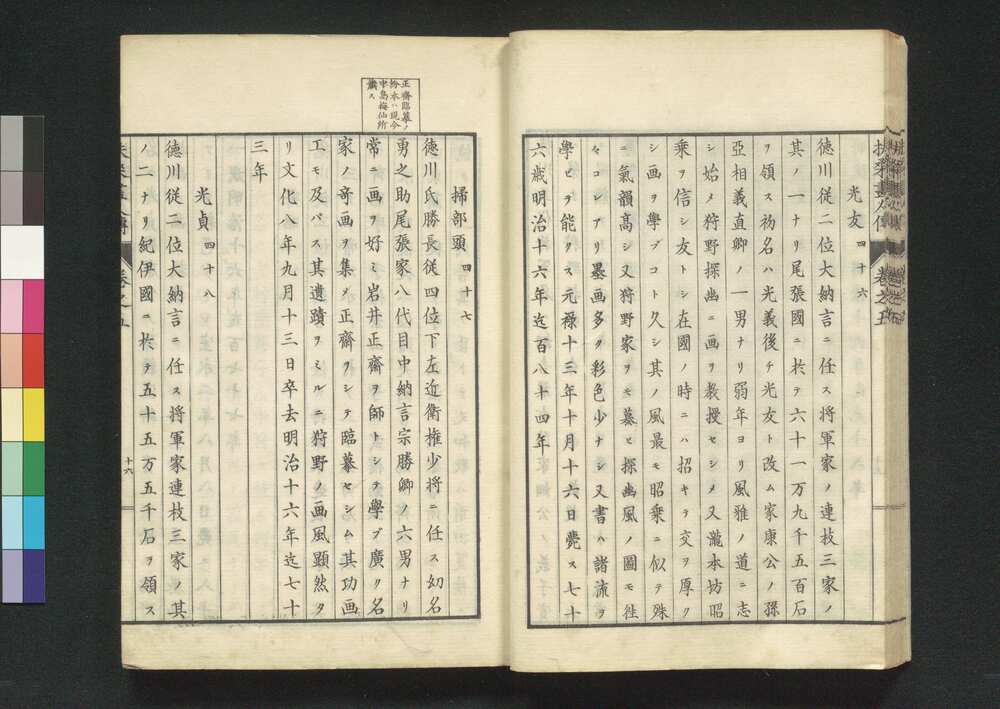 光友 四十六
徳川従二位大納言ニ任ス将軍家ノ連枝三家ノ
其ノ一ナリ尾張國ニ於テ六十一万九千五百石
ヲ領ス初名ハ光義後チ光友ト改ム家康公ノ孫
亞相義直卿ノ一男ナリ弱年ヨリ風雅ノ道ニ志
シ始メ狩野探幽ニ画ヲ教授セシメ又瀧本坊昭
乗ヲ信シ友トシ在國ノ時ニハ招キテ交ヲ厚ク
シ画ヲ學ブコト久シ其ノ風最モ昭乗ニ似テ殊
ニ氣韻高シ又狩野家ヲモ慕ヒ探幽風ノ圖モ徃
々コレアリ墨画多ク彩色少ナシ又書ハ諸流ヲ
學ビテ能クス元禄十三年十月十六日薨ス七十
六歳明治十六年迄百八十四年
正齋臨摹ノ
粉本ハ現今
中島梅仙所
藏ス
掃部頭 四十七
徳川氏勝長従四位下左近衛権少将ニ任ス幻名
勇之助尾張家八代目中納言宗勝卿ノ六男ナリ
常ニ画ヲ好ミ岩井正齋ヲ師トシテ學ブ廣ク名
家ノ竒画ヲ集メ正齋クシテ臨摹セシム其功画
工モ及バス其遺蹟ヲミルニ狩野ノ画風顕然タ
リ文化八年九月十三日卒去明治十六年迄七十
三年
光貞 四十八
徳川従二位大納言ニ任ス将軍家連枝三家ノ其
ノ二ナリ紀伊國ニ於テ五十五万五千石ヲ領ス
卷之五
十六